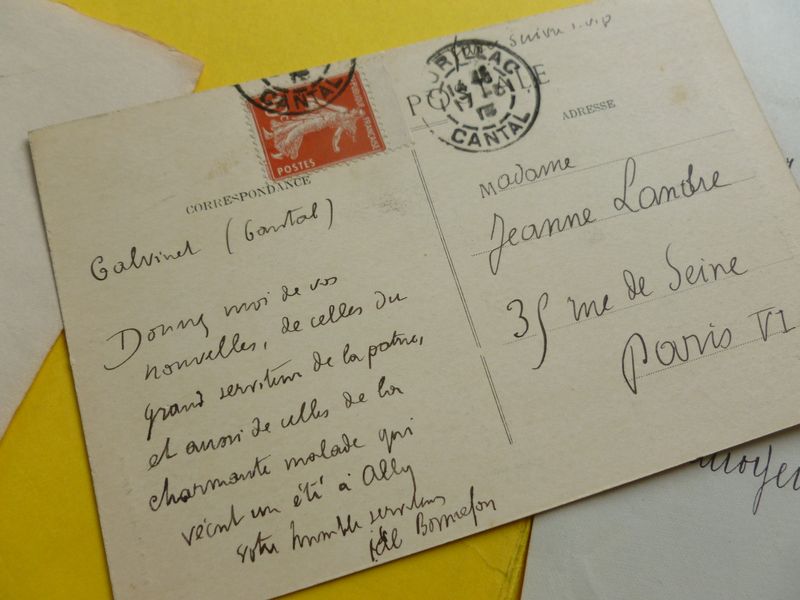 suivre s.v.p
AURILLAC
14 45
17
CANTAL
CANTAL
POSTES
CORRESPONDANCE
ADRESSE
Calvinet (Cantal)
Donnez moi de vos
nouvelles, de celles du
grand serviteur de la patrie,
et aussi de celles de la
charmante malade qui
vécut un été à Ally
votre humble serviteur
Bonnefon
Madame
Jeanne Landre
35 rue de Seine
Paris VI